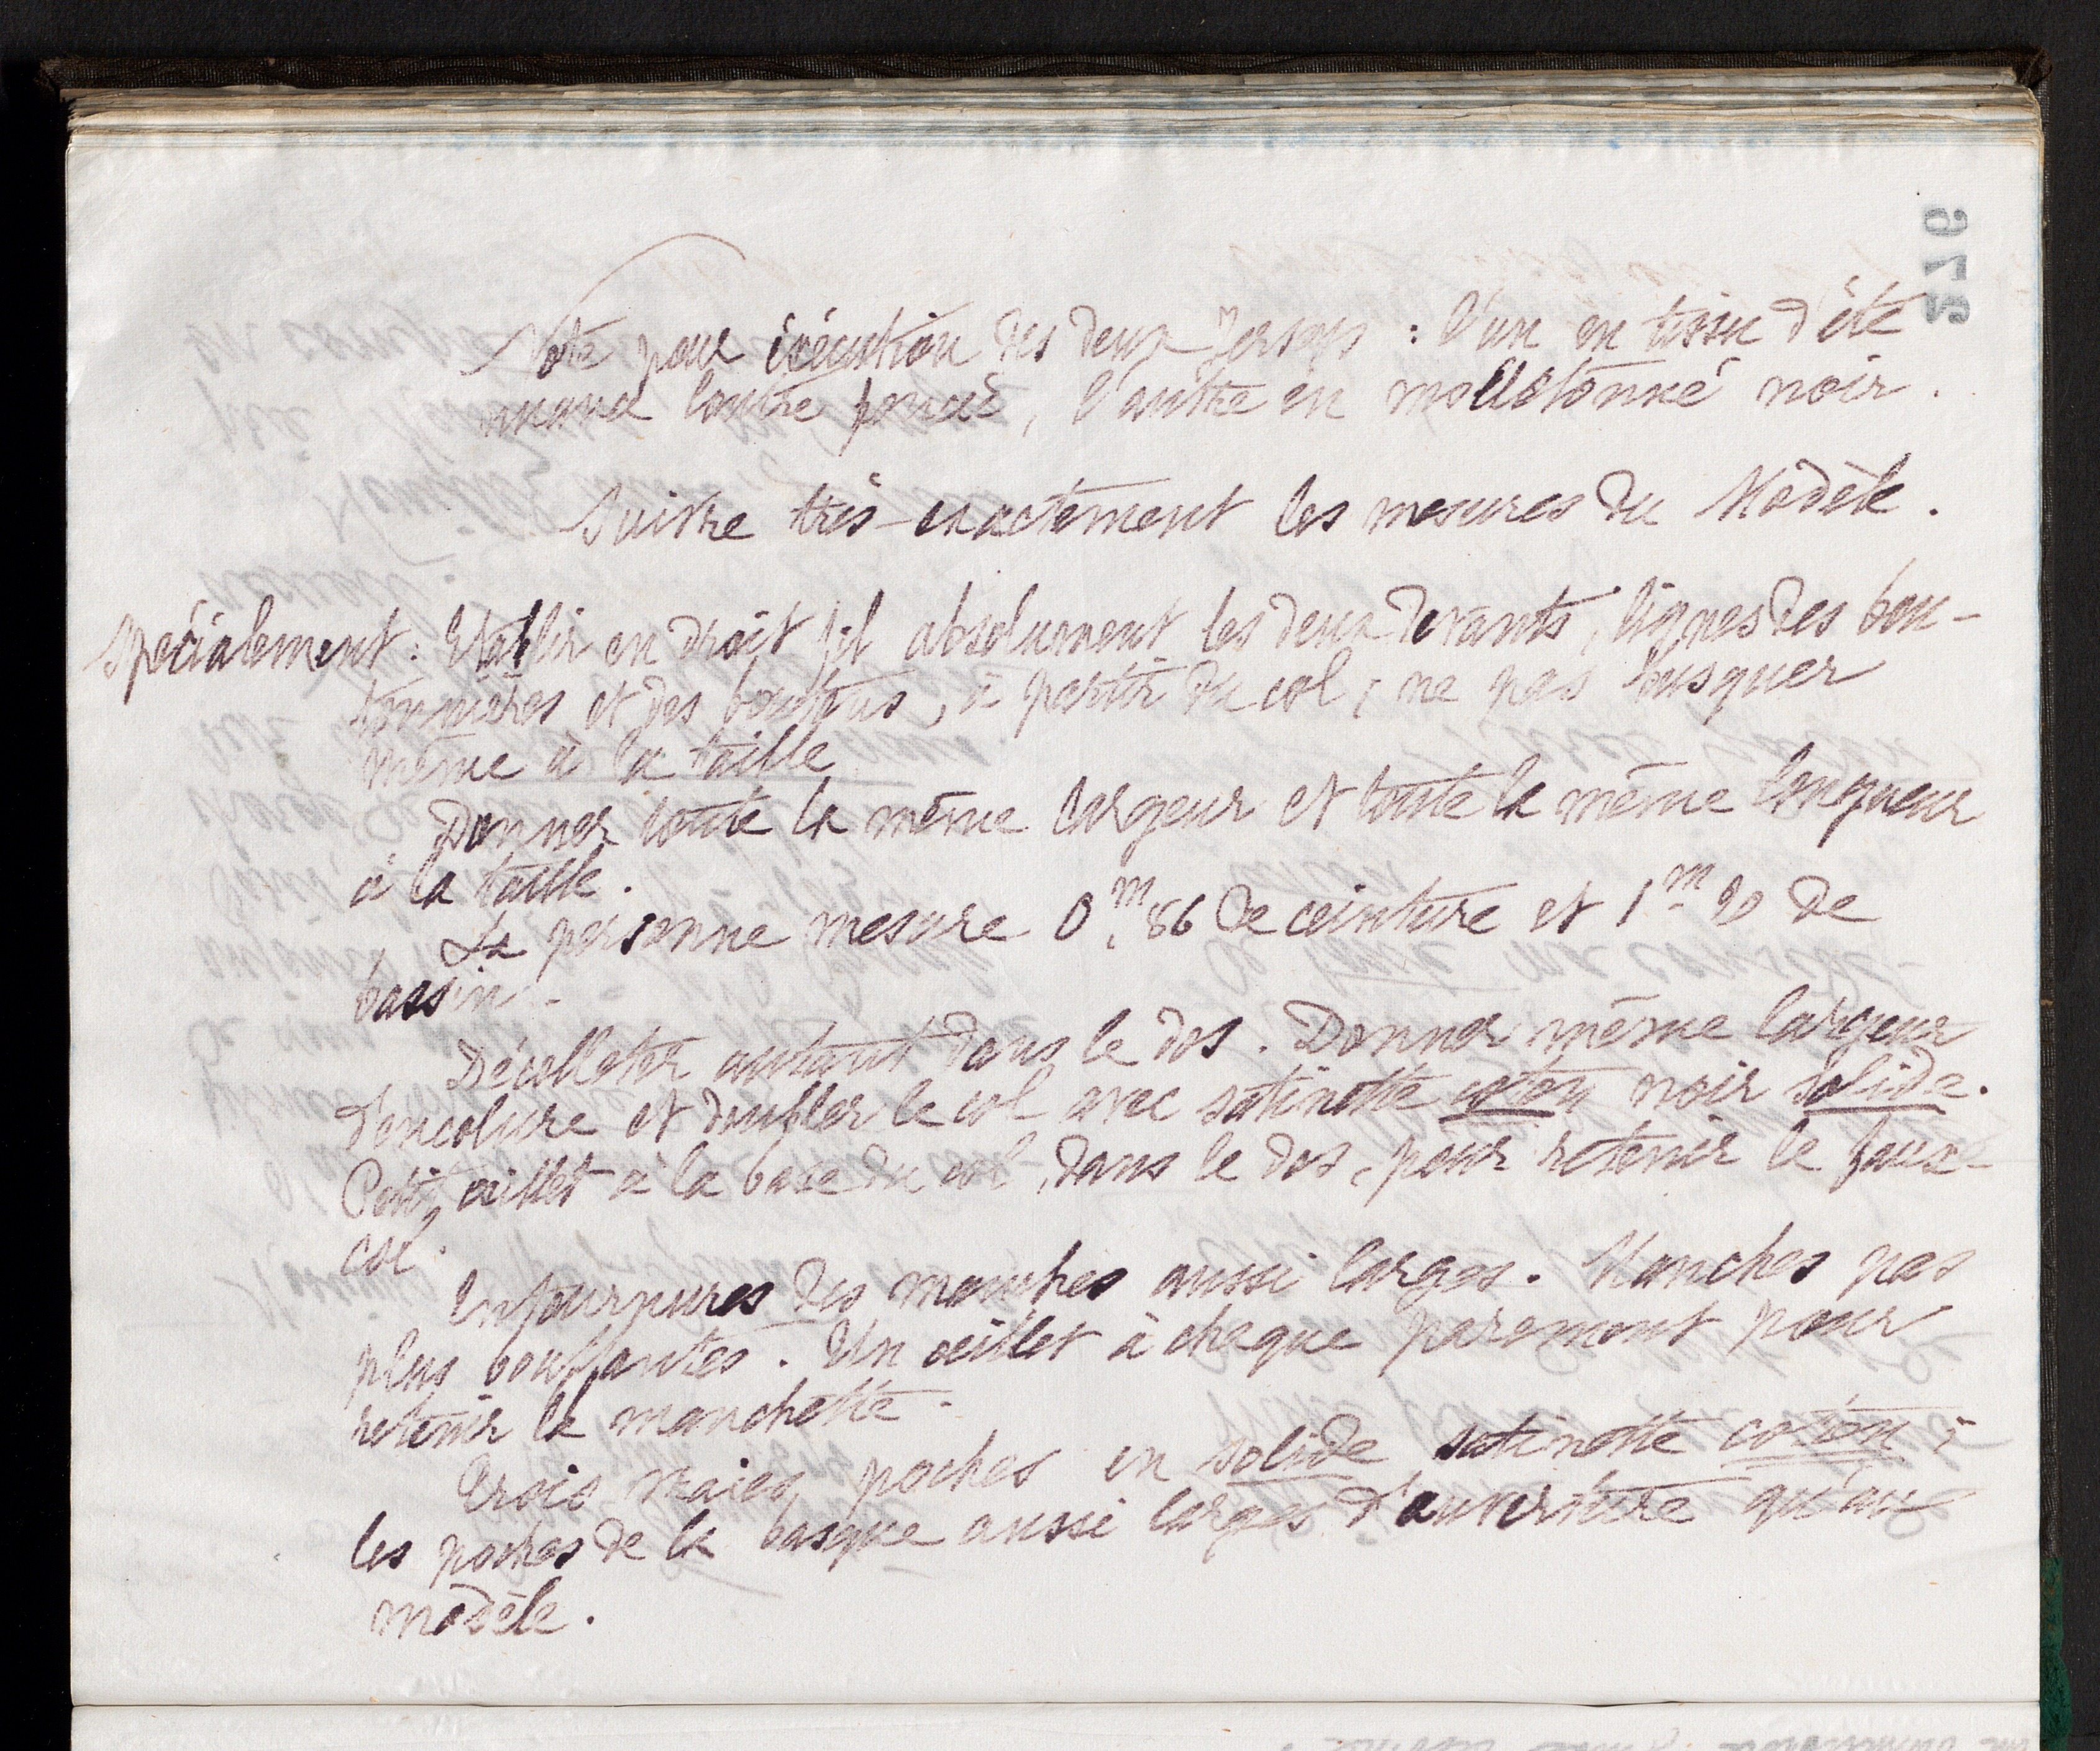 Note pour exécution des deux Jerseys : l'un en tissu d'été
nuance loutre foncée, l'autre en molletonné noir.
Suivre très-exactement les mesures du Modèle.
Spécialement : Etablir en droit fil absolument les deux devants, lignes des bou-
tonnières et des boutons, à partir du col ; ne pas busquer
même à la taille
Donner toute la même largeur et toute la même longueur
à la taille.
La personne mesure 0m,86 de ceinture et 1m de
bassin.
Décolleter autant dans le dos. Donner même largeur
d'encolure et doubler le col avec satinette coton noir solide.
Petit œillet à la base du col, dans le dos, pour retenir le faux-
col.
Enfournures des manches aussi larges. Manches pas
plus bouffantes. Un œillet à chaque parement pour
retenir la manchette.
Trois vraies poches en solide satinette coton ;
les poches de la basque aussi larges d'ouverture qu'au
modèle.